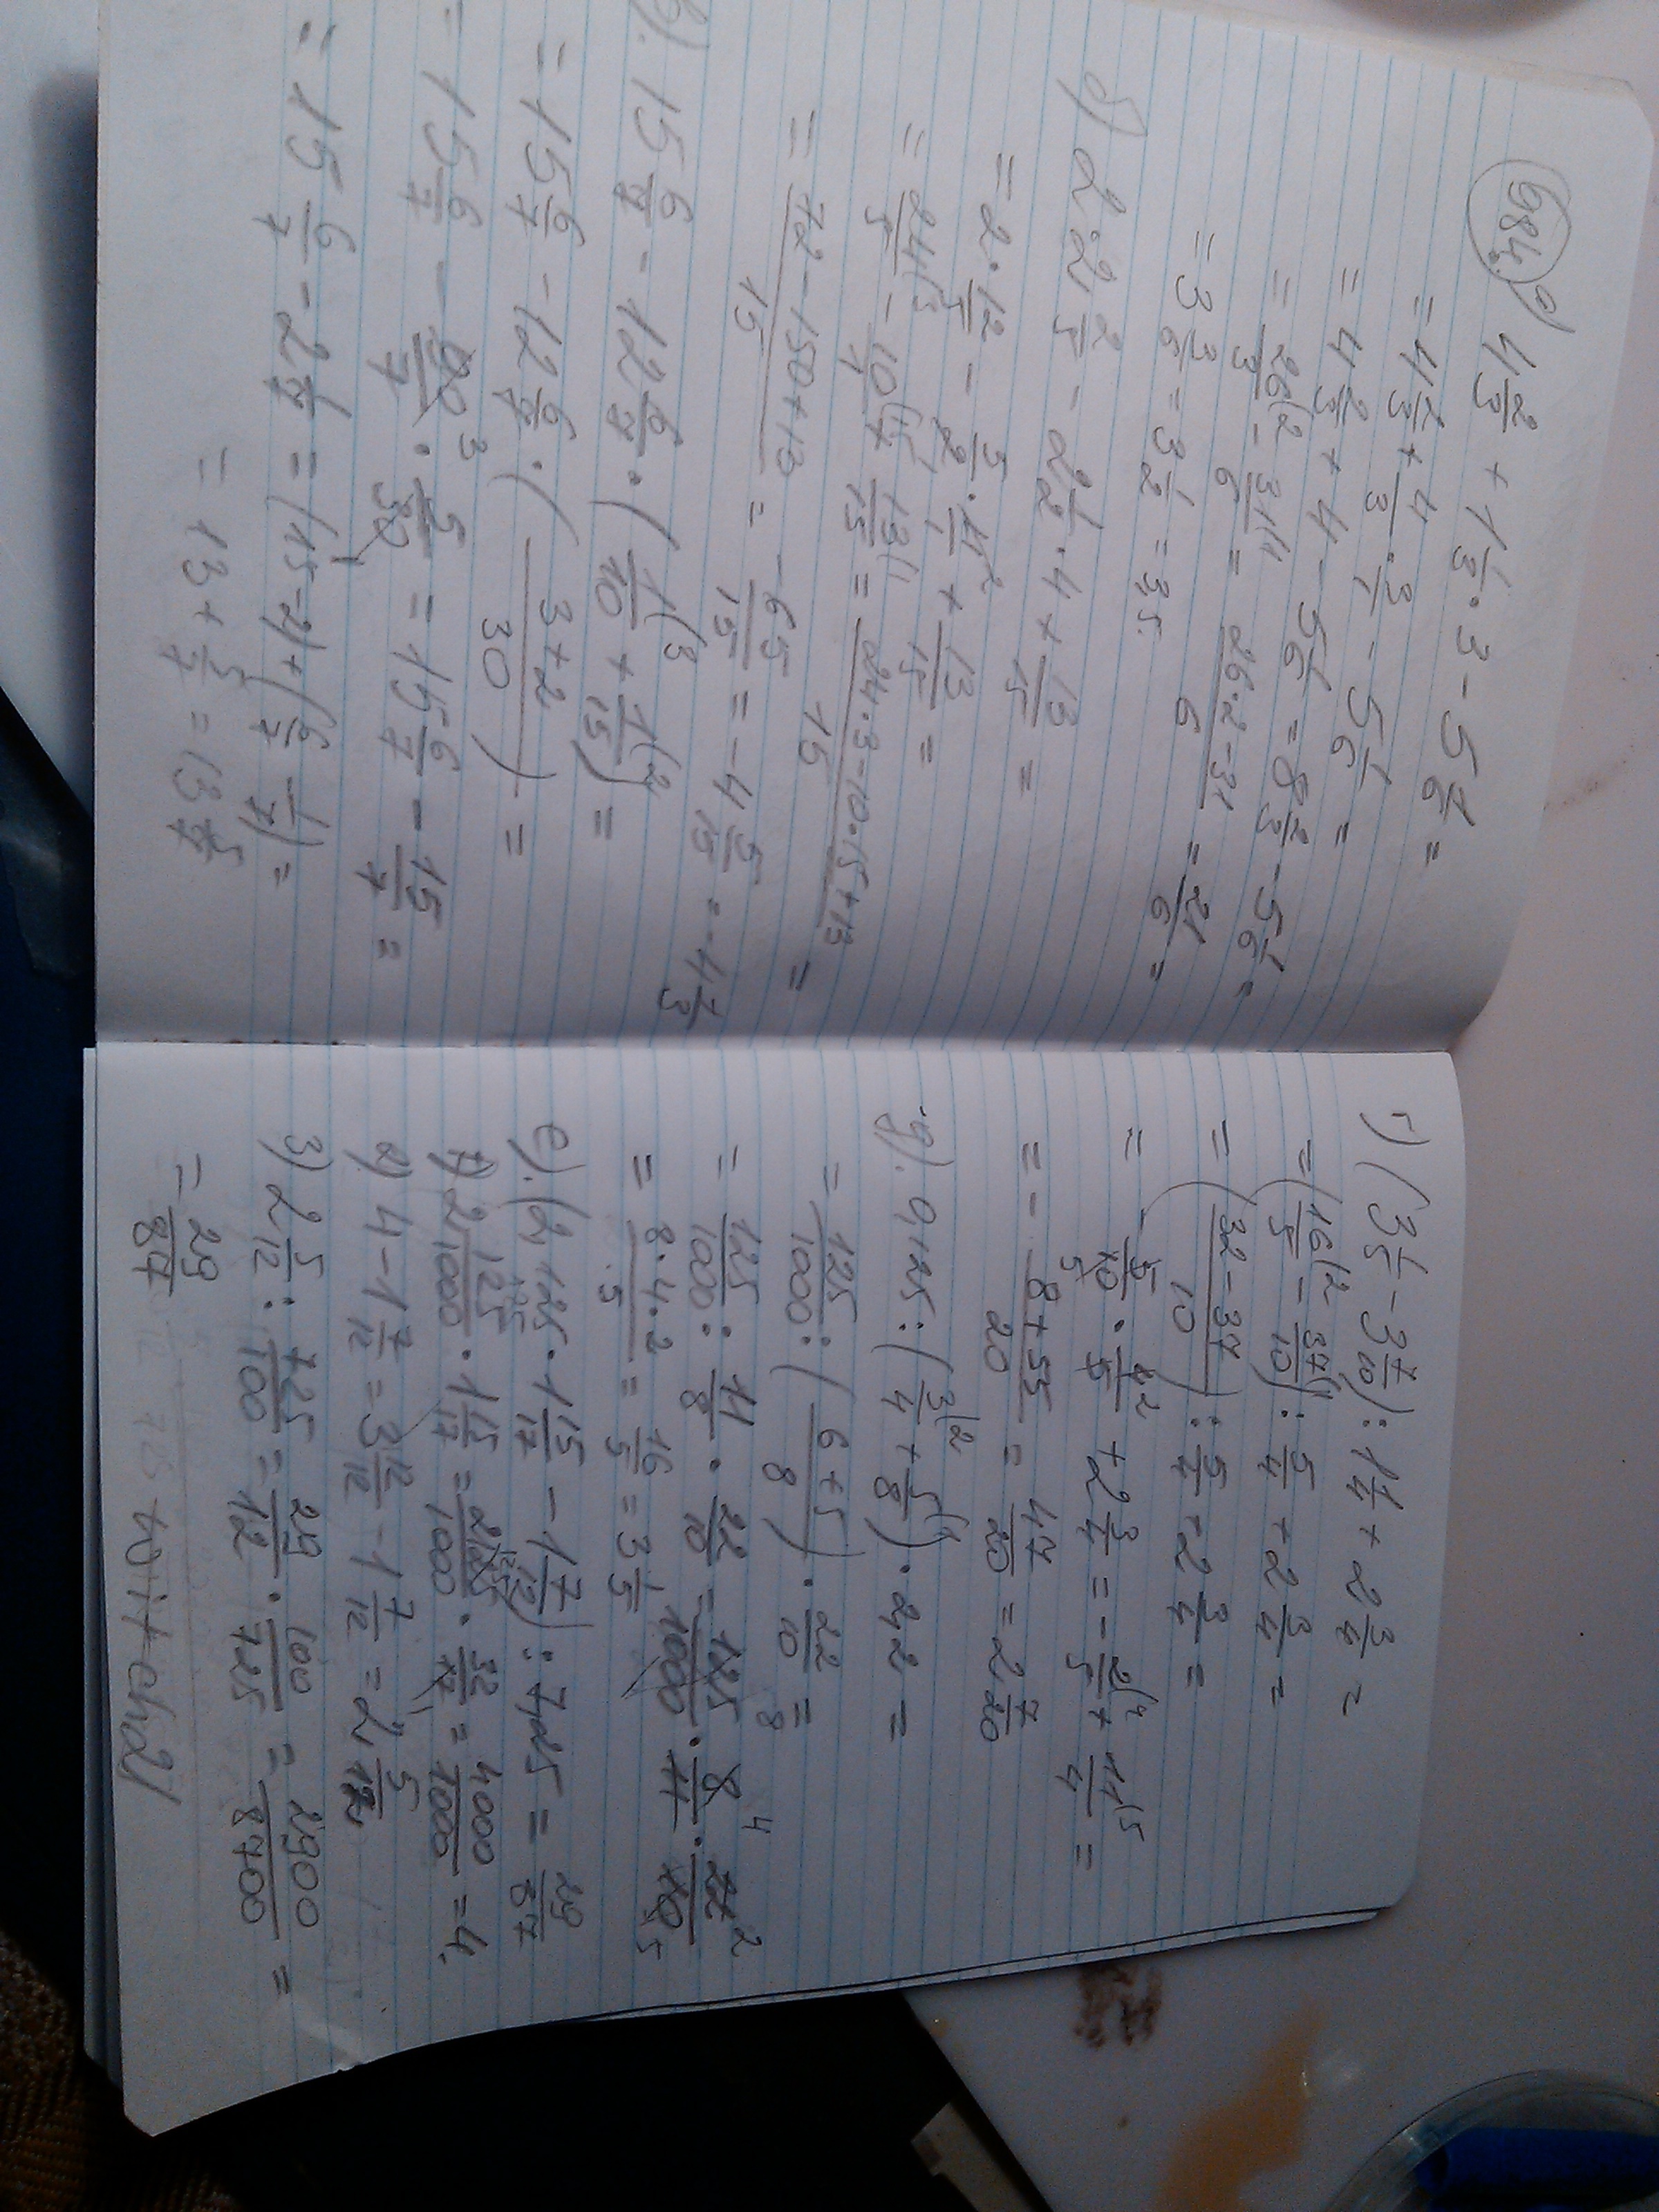 684. а) 4 2/3 + 1 1/3 · 3 - 5 1/6 =
= 4 2/3 + 4/3 · 3/1 - 5 1/6 =
= 4 2/3 + 4 - 5 1/6 = 8 2/3 - 5 1/6 =
= 26(2/3 - 31(1/6 = 26·2-31/6 = 21/6 =
= 3 3/6 = 3 1/2 = 3,5.
б) 2·2 2/5 - 2 1/2 · 4 + 13/15 =
= 2 · 12/5 - 5/2 · 4 2/1 + 13/15 =
= 24(3/5 - 10(15/1 + 13(1/15 = 24·3-10·15+13/15 =
= 72-150+13/15 = -65/15 = -4 5/15 = -4 1/3
в). 15 6/7 - 12 6/7 · (1(3/10 + 1(2/15) =
= 15 6/7 - 12 6/7 · (3+2/30) =
= 15 6/7 - 90 3/7 · 5/30 1 = 15 6/7 - 15/7 =
= 15 6/7 - 2 1/7 = (15-2)+(6/7 - 1/7) =
= 13 + 5/7 = 13 5/7
г) (3 1/5 - 3 7/10) : 1 1/4 + 2 3/4 =
= (16(2/5 - 37(1/10) : 5/4 + 2 3/4 =
= (32-37/10) : 5/4 + 2 3/4 =
= - 5/10 5 · 4 2/5 + 2 3/4 = - 2(4/5 + 11(5/4 =
= - 8+55/20 = 47/20 = 2 7/20
д). 0,125 : (3(2/4 + 5(1/8) · 2,2 =
= 125/1000 : (6+5/8) · 22/10 =
= 125/1000 : 11/8 · 22/10 = 125/1000 8 · 8 4/11 · 22 2/10 5
= 8·4·2/5 = 16/5 = 3 1/5
е). (2,125 · 1 15/17 - 1 7/12) : 7,25 = 29/87
1) 2 125/1000 · 1 15/17 = 2125 125/1000 · 32/17 1 = 4000/1000 = 4.
2) 4 - 1 7/12 = 3 12/12 - 1 7/12 = 2 5/12
3) 2 5/12 : 725/100 = 29/12 · 100/725 = 2900/8700 =
= 29/87